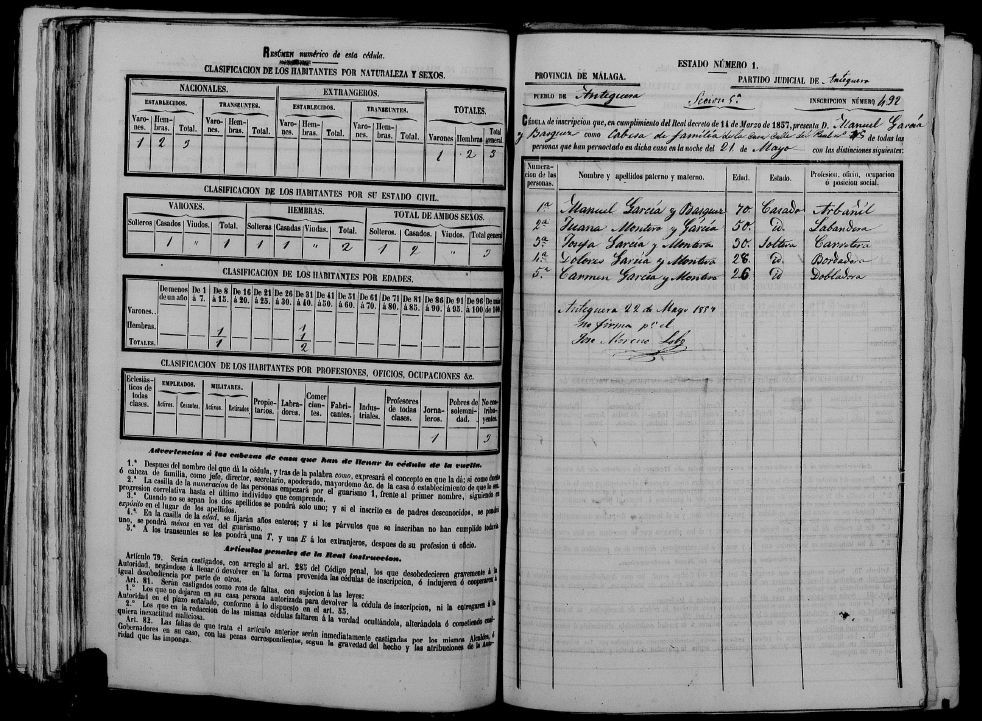 RESÚMEN numérico de esta cédula.
CLASIFICACION DE LOS HABITANTES POR NATURALEZA Y SEXOS.
NACIONALES. EXTRANGEROS. TOTALES.
ESTABLECIDOS. TRANSEUNTES. ESTABLECIDOS. TRANSEUNTES.
Varones. Hembras. Total. Varones. Hembras. Total. Varones. Hembras. Total. Varones. Hembras. Total. Varones Hembras Total general
1 2 3 1 2 3
CLASIFICACION DE LOS HABITANTES POR SU ESTADO CIVIL.
VARONES. HEMBRAS. TOTAL DE AMBOS SEXOS.
Solteros Casados Viudos. Total. Solteras Casadas Viudas. Total. Solteros. Casados. Viudos. Total general
1 " 1 1 1 " 2 1 2 " 3
CLASIFICACION DE LOS HABITANTES POR EDADES.
De menos de un año De 1 á 7. De 8 á 15. De 16 á 20. De 21 á 25. De 26 á 30. De 31 á 40. De 41 á 50. De 51 á 60. De 61 á 70. De 71 á 80. De 81 á 85. De 86 á 90. De 91 á 95. De 96 á 100 De mas de 100.
Varones..
Hembras. 1 1
TOTALES. 1 2
CLASIFICACION DE LOS HABITANTES POR PROFESIONES, OFICIOS, OCUPACIONES &c.
Eclesiásticos de todas clases. EMPLEADOS. Activos. Cesantes. MILITARES. Activos. Retirados Propietarios. Labradores. Comerciantes. Fabricantes. Industriales. Profesores de todas clases. Jornaleros. Pobres de solemnidad. No contribuyentes.
1 3
Advertencias á las cabezas de casa que han de llenar la cédula de la vuelta.
1.ª Despues del nombre del que dá la cédula, y tras de la palabra como, expresará el concepto en que la dá; si como dueño
ó cabeza de familia, como jefe, director, secretario, apoderado, mayordomo &c. de la casa ó establecimiento de que la sea.
2.ª La casilla de la numeracion de las personas empezará por el guarismo 1, frente al primer nombre, siguiendo en
progresion correlativa hasta el último individuo que comprenda.
3.ª Cuando no se sepan los dos apellidos se pondrá solo uno; y si el inscrito es de padres desconocidos, se pondrá
expósito en el lugar de los apellidos.
4.ª En la casilla de la edad, se fijarán años enteros; y si los párvulos que se inscriban no han cumplido todavia
uno, se pondrá ménos en vez del guarismo.
5.ª A los transeuntes se les pondrá una T, y una E á los extranjeros, despues de su profesion ú oficio.
Artículos penales de la Real instruccion.
Artículo 79. Serán castigados, con arreglo al art. 285 del Código penal, los que desobedecieren gravemente á la
Autoridad, negándose á llenar ó devolver en la forma prevenida las cédulas de inscripcion, ó indujeren ó cooperaren á
igual desobediencia por parte de otros.
Art. 81. Serán castigados como reos de faltas, con sujecion á las leyes:
1.º Los que no dejaren en su casa persona autorizada para devolver la cédula de inscripcion, ni la entregaren á la
Autoridad en el plazo señalado, conforme á lo dispuesto en el art. 55.
2.º Los que en la redaccion de las mismas cédulas faltaren á la verdad ocultándola, alterándola ó cometiendo cualquiera inexactitud maliciosa.
Art. 82. Las faltas de que trata el artículo anterior serán inmediatamente castigadas por los mismos Alcaldes, ó
Gobernadores en su caso, con las penas correspondientes, segun la gravedad del hecho y las atribuciones de la Autoridad que las imponga.
ESTADO NÚMERO 1.
PROVINCIA DE MÁLAGA. PARTIDO JUDICIAL DE Antequera
PUEBLO DE Antequera Seccion 5ª INSCRIPCION NÚMERO 492
CÉDULA de inscripcion que, en cumplimiento del Real decreto de 14 de Marzo de 1857, presenta D. Manuel García
y Basquez como Cabesa de familia de la casa calle de de todas las
personas que han pernoctado en dicha casa en la noche del 21 de Mayo con las distinciones siguientes:
Numeracion de las personas. Nombre y apellidos paterno y materno. Edad. Estado. Profesion, oficio, ocupacion ó posicion social.
1ª Manuel García y Basquez 70. Casado Arbañil
2ª Juana Montero y García 50. Id. Labandera
3ª Josefa García y Montero 30. Soltera Carretera
4ª Dolores García y Montero 28. Id. Bordadora
5ª Carmen García y Montero 26 Id Dobladora
Antequera 22 de Mayo 1857
no firma pr el
Jose Moreno